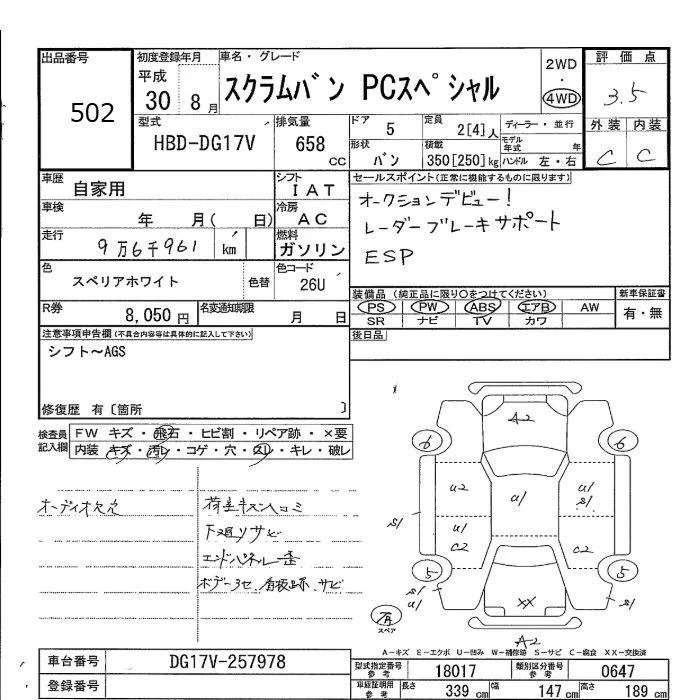 出品番号
502
初度登録年月
平成
30 8月
車名・グレード
スクラムバン PCスペシャル
2WD
・
4WD
評価点
3.5
外装 内装
C C
型式
HBD-DG17V
排気量
658
CC
ドア 5
形状 バン
定員 2[4]人
積載 350[250]kg
ディーラー・並行
モデル年式 年
ハンドル 左・右
車歴
自家用
シフト
IAT
車検
年 月( 日)
冷房
AC
走行
9万6千961 km
燃料
ガソリン
色
スペリアホワイト
色替
色コード
26U
R券
8,050円
名変通知期限
月 日
セールスポイント(正常に機能するものに限ります)
オークションデビュー!
レーダーブレーキサポート
ESP
装備品(純正品に限り○をつけてください)
PS PW ABS エアB AW
SR ナビ TV カワ
新車保証書
有・無
後日品
注意事項申告欄(不具合内容等は具体的に記入して下さい)
シフト~AGS
修復歴 有〔箇所 〕
検査員
記入欄
FW キズ・飛石・ヒビ割・リペア跡・×要
内装 キズ・汚レ・コゲ・穴・スレ・キレ・破レ
オーディオ欠
キズ
下廻りサビ
エンドパネル
ボデー サビ
A2
6 6
U2 U1 U1
S1
S1
U1
C2 C2
5 5
S1
U1
S1
XX
スペア
A2
A-キズ E-エクボ U-凹み W-補修跡 S-サビ C-腐食 XX-交換済
車台番号
DG17V-257978
登録番号
型式指定番号
参考
18017
類別区分番号
参考
0647
車庫証明用
参考
長さ 339 cm
幅 147 cm
高さ 189 cm